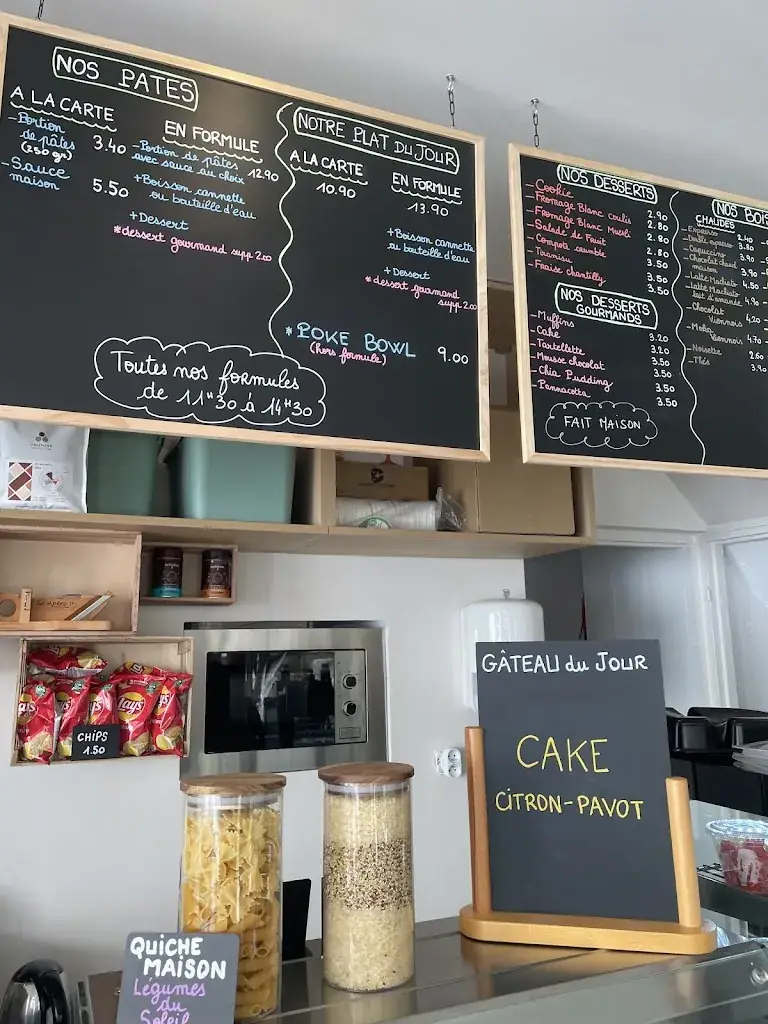 NOS PATES
A LA CARTE
- Portion
de pâtes
(250 gr)
3.40
- Sauce
maison
5.50
EN FORMULE
- Portion de pâtes
avec sauce au choix
12.90
+ Boisson cannette
ou bouteille d'eau
+ Dessert
* dessert gourmand supp 2.00
Toutes nos formules
de 11H30 à 14H30
NOTRE PLAT DU JOUR
A LA CARTE
10.90
EN FORMULE
13.90
+ Boisson cannette
ou bouteille d'eau
+ Dessert
* dessert gourmand
supp 2.00
* POKE BOWL 9.00
(hors formule)
NOS DESSERTS
- Cookie 2.90
- Fromage Blanc coulis 2.80
- Fromage Blanc Muesli 2.80
- Salade de Fruit 2.80
- Compote crumble 3.50
- Tiramisu 3.50
- Fraise chantilly 3.50
NOS DESSERTS
GOURMANDS
- Muffins 3.20
- Cake 3.20
- Tartelette 3.50
- Mousse chocolat 3.50
- Chia Pudding 3.50
- Pannacotta 3.50
FAIT MAISON
NOS BOIS
CHAUDES
- Expresso 2.40
- Double expresso 3.80
- Cappuccino 3.90
- Chocolat chaud
maison 3.90
- Latte Machiato 4.50
- Latte Machiato
lait d'amande 4.90
- Chocolat
Viennois 4.20
- Moka
Viennois 4.70
- Noisette 2.60
- Thés 3.90
Lay's
CHIPS
1.50
GÂTEAU du JOUR
CAKE
CITRON-PAVOT
QUICHE
MAISON
Légumes
du
Soleil